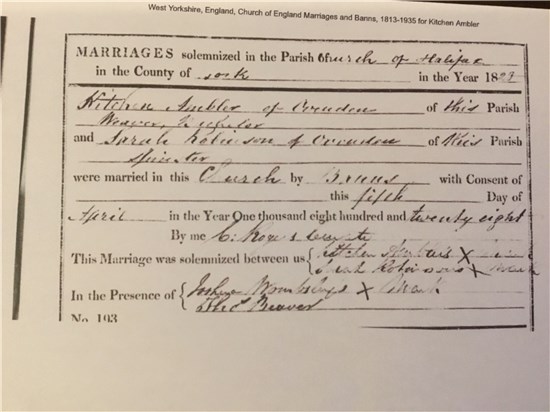 West Yorkshire, England, Church of England Marriages and Banns, 1813-1935 for Kitchen Ambler
MARRIAGES solemnized in the Parish Church of Halifax
in the County of York in the Year 18
Kitchen Ambler of of this Parish
Weaver
and Sarah Robinson of of this Parish
Spinster
were married in this Church by Banns with Consent of
this fifth Day of
April in the Year One thousand eight hundred and twenty eight
By me
This Marriage was solemnized between us { X
Sarah Robinson X Mark
In the Presence of { X Mark
Beaver
No. 193